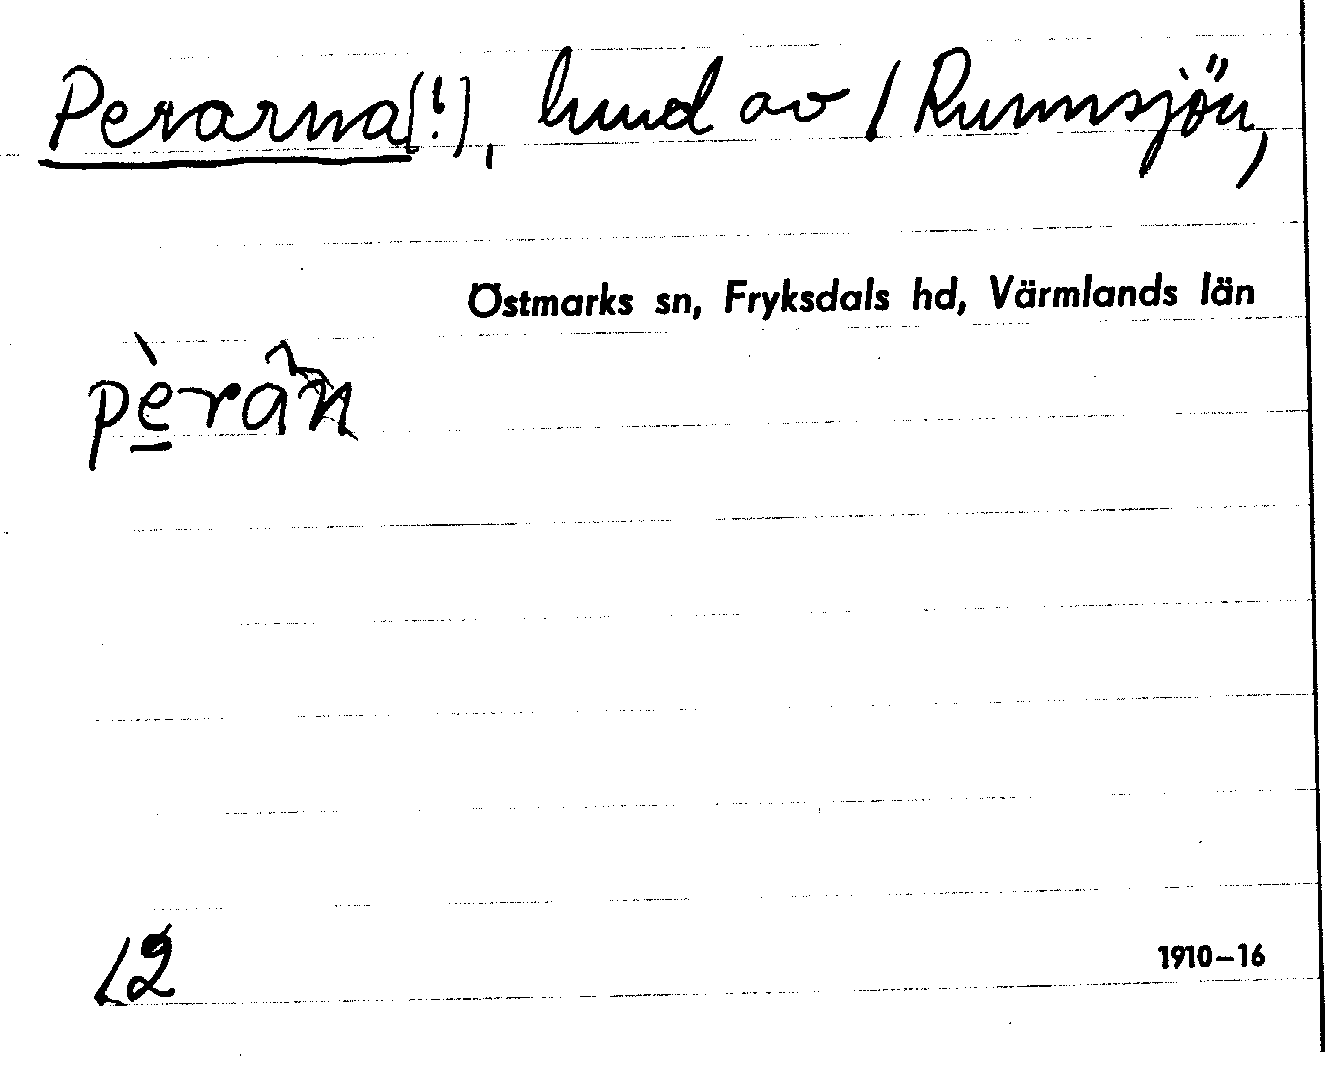 Perarna(!), hmd av / Runnsjön,
Östmarks sn, Fryksdals hd, Värmlands län
pèrân
12
1910–16